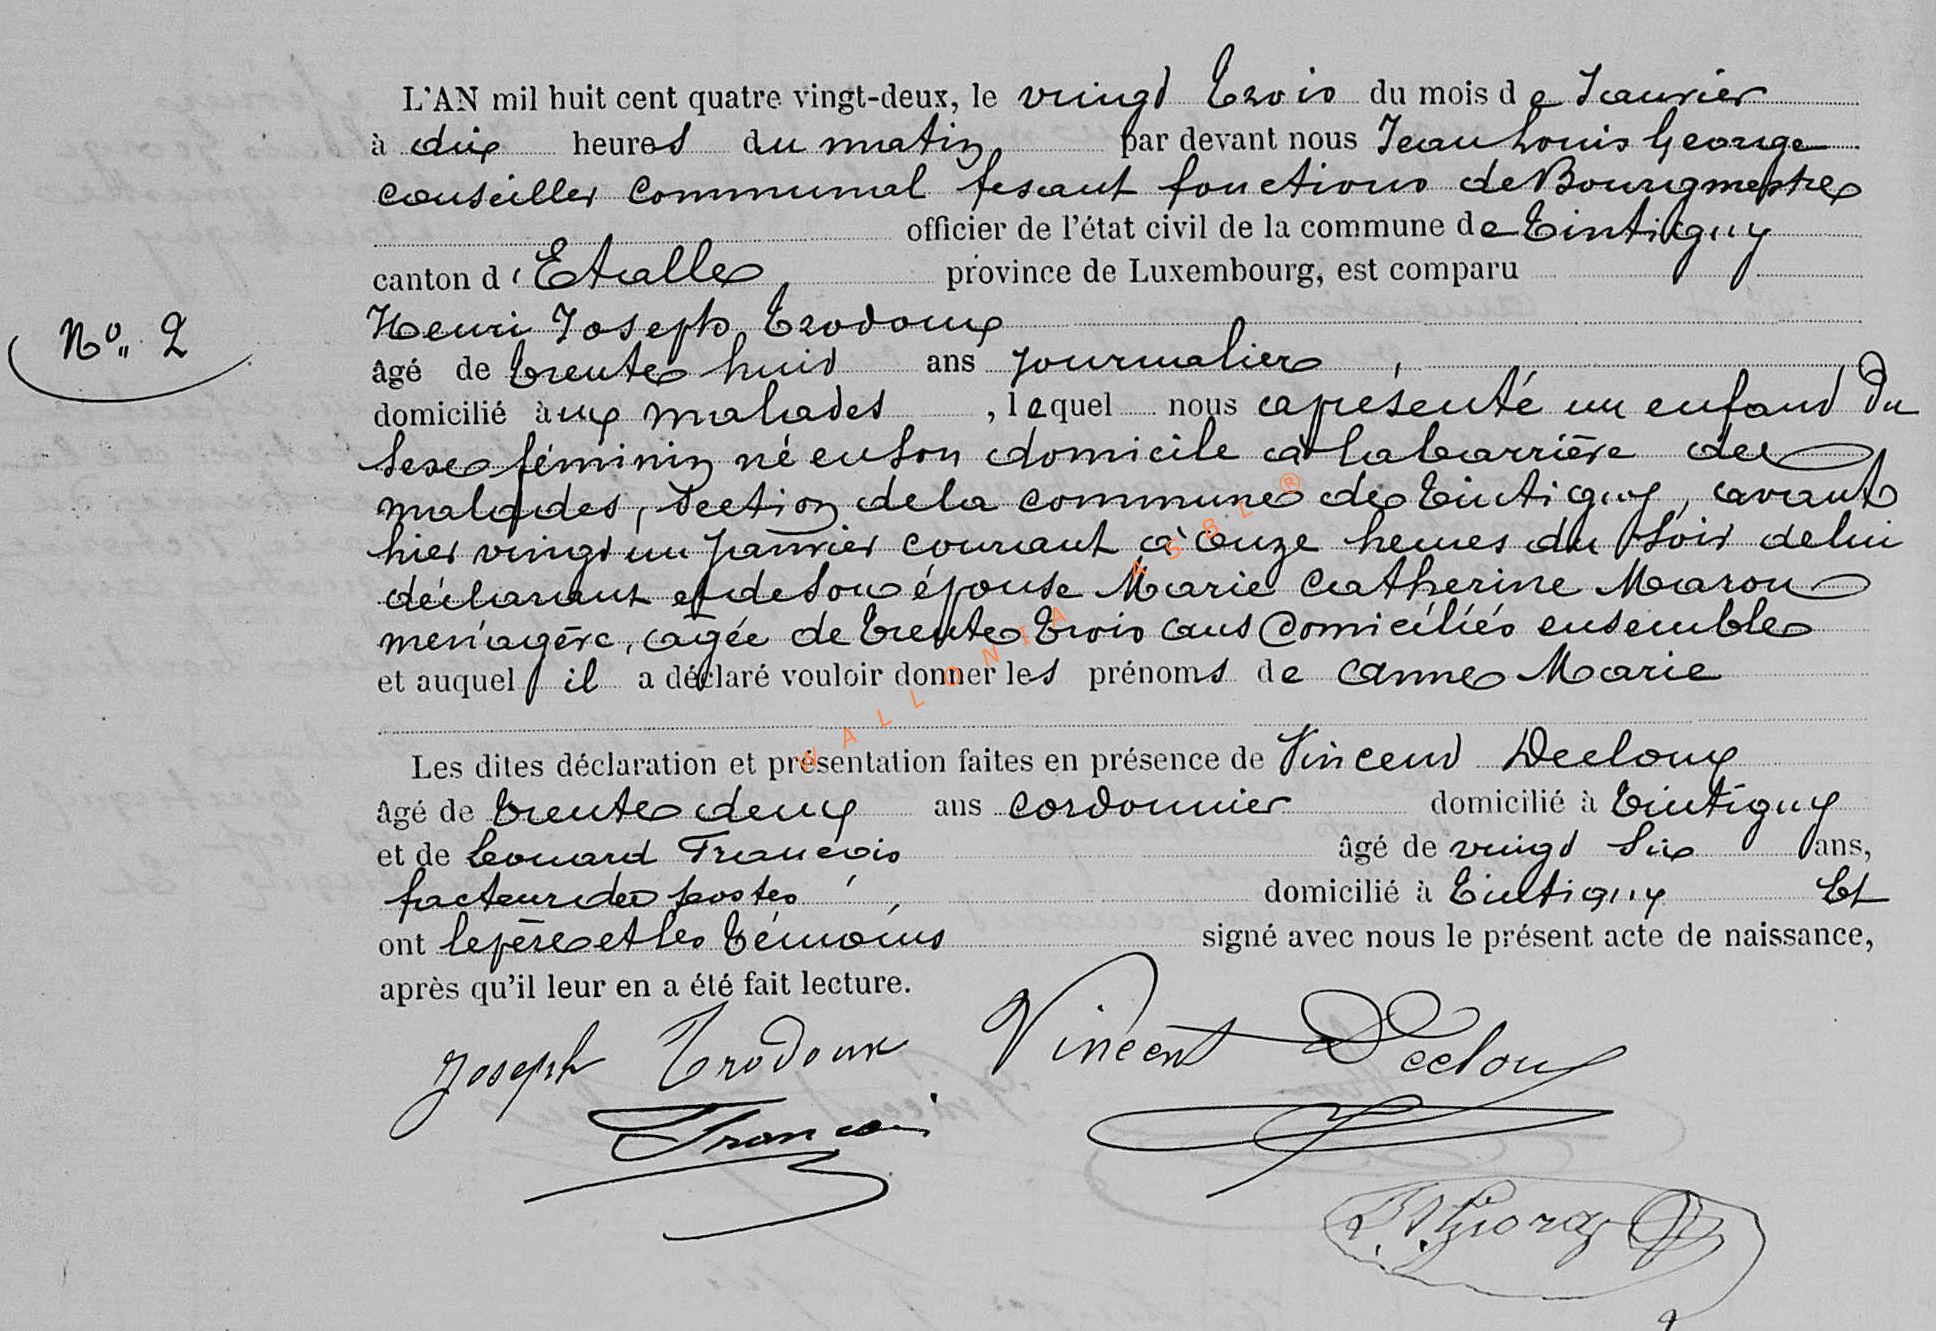 L'AN mil huit cent quatre vingt-deux, le vingd trois du mois de Janvier
à dix heures du matin par devant nous Jean Louis George
conseiller communal fesant fonctions de Bourgmestre
officier de l'état civil de la commune de Tintigny
canton d'Etalle province de Luxembourg, est comparu
Henri Joseph Trodoux
N° 2
âgé de trente huid ans journalier,
domicilié à ux malades, lequel nous a présenté un enfand du
sexe féminin né en son domicile à la barrière des
malades, section de la commune de Tintigny, avant
hier vingd un janvier courant à onze heures du soir de lui
déclarant et de son épouse Marie Catherine Maron
ménagère, âgée de trente trois ans domiciliés ensemble
et auquel il a déclaré vouloir donner les prénoms de Anne Marie
Les dites déclaration et présentation faites en présence de Vincend Decloux
âgé de trente deux ans cordonnier domicilié à Tintigny
et de Leonard François âgé de vingd six ans,
facteur des postes, domicilié à Tintigny Et
ont le père et les témoins signé avec nous le présent acte de naissance,
après qu'il leur en a été fait lecture.
Joseph Trodoux Vincent Decloux
François
J. L. George
WALLONIA ASBL ®